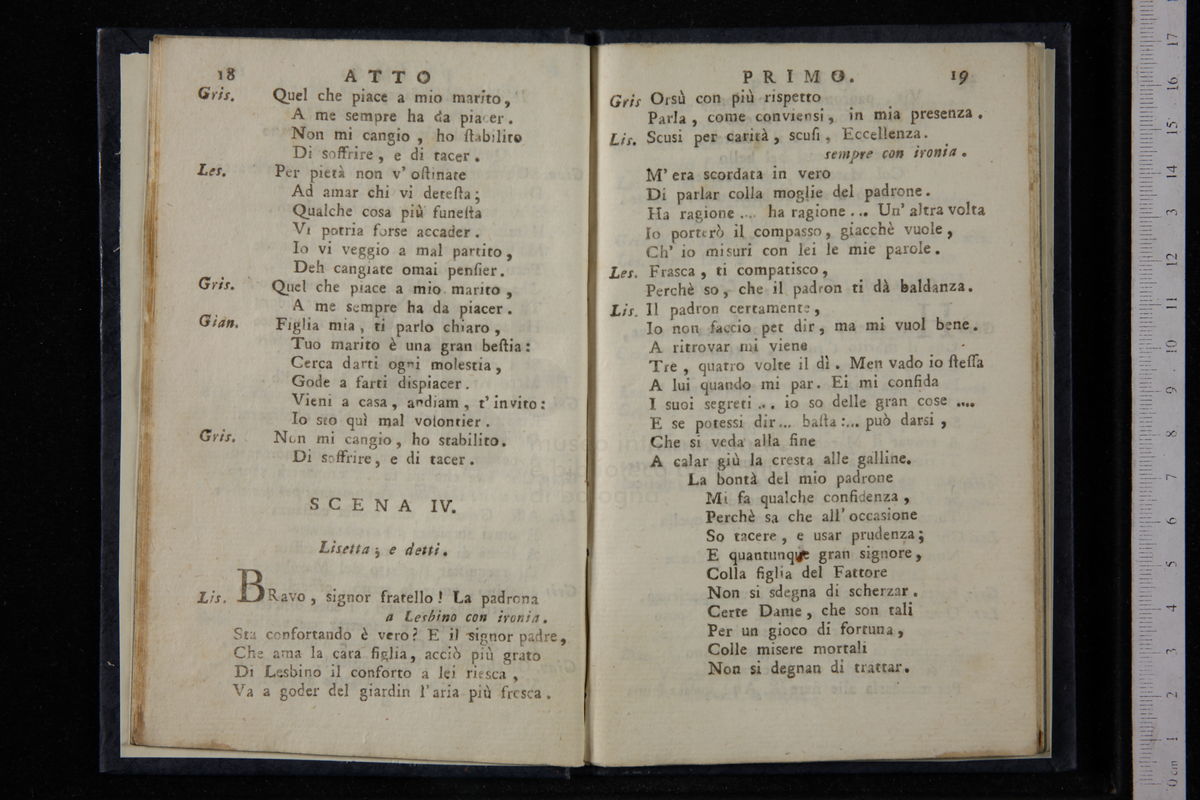 18 ATTO
Gris. Quel che piace a mio marito,
A me sempre ha da piacer.
Non mi cangio, ho ſtabilito
Di soffrire, e di tacer.
Les. Per pietà non v' oſtinate
Ad amar chi vi deteſta;
Qualche cosa più funeſta
Vi potria forse accader.
Io vi veggio a mal partito,
Deh cangiate omai penſier.
Gris. Quel che piace a mio marito,
A me sempre ha da piacer.
Gian. Figlia mia, ti parlo chiaro,
Tuo marito è una gran beſtia:
Cerca darti ogni molestia,
Gode a farti dispiacer.
Vieni a casa, andiam, t' invito:
Io sto quì mal volontier.
Gris. Non mi cangio, ho stabilito.
Di soffrire, e di tacer.
SCENA IV.
Lisetta; e detti.
Lis. BRavo, signor fratello! La padrona
a Lesbino con ironia.
Sta confortando è vero? E il signor padre,
Che ama la cara figlia, acciò più grato
Di Lesbino il conforto a lei riesca,
Va a goder del giardin l'aria più fresca.
PRIMO. 19
Gris Orsù con più rispetto
Parla, come conviensi, in mia presenza.
Lis. Scusi per carità, scuſi, Eccellenza.
sempre con ironia.
M' era scordata in vero
Di parlar colla moglie del padrone.
Ha ragione .... ha ragione ... Un' altra volta
Io porterò il compasso, giacchè vuole,
Ch' io misuri con lei le mie parole.
Les. Frasca, ti compatisco,
Perchè so, che il padron ti dà baldanza.
Lis. Il padron certamente,
Io non faccio per dir, ma mi vuol bene.
A ritrovar mi viene
Tre, quatro volte il dì. Men vado io ſteſſa
A lui quando mi par. Ei mi confida
I suoi segreti ... io so delle gran cose ....
E se potessi dir... baſta:... può darsi,
Che si veda alla fine
A calar giù la cresta alle galline.
La bontà del mio padrone
Mi fa qualche confidenza,
Perchè sa che all' occasione
So tacere, e usar prudenza;
E quantunque gran signore,
Colla figlia del Fattore
Non si sdegna di scherzar.
Certe Dame, che son tali
Per un gioco di fortuna,
Colle misere mortali
Non si degnan di trattar.